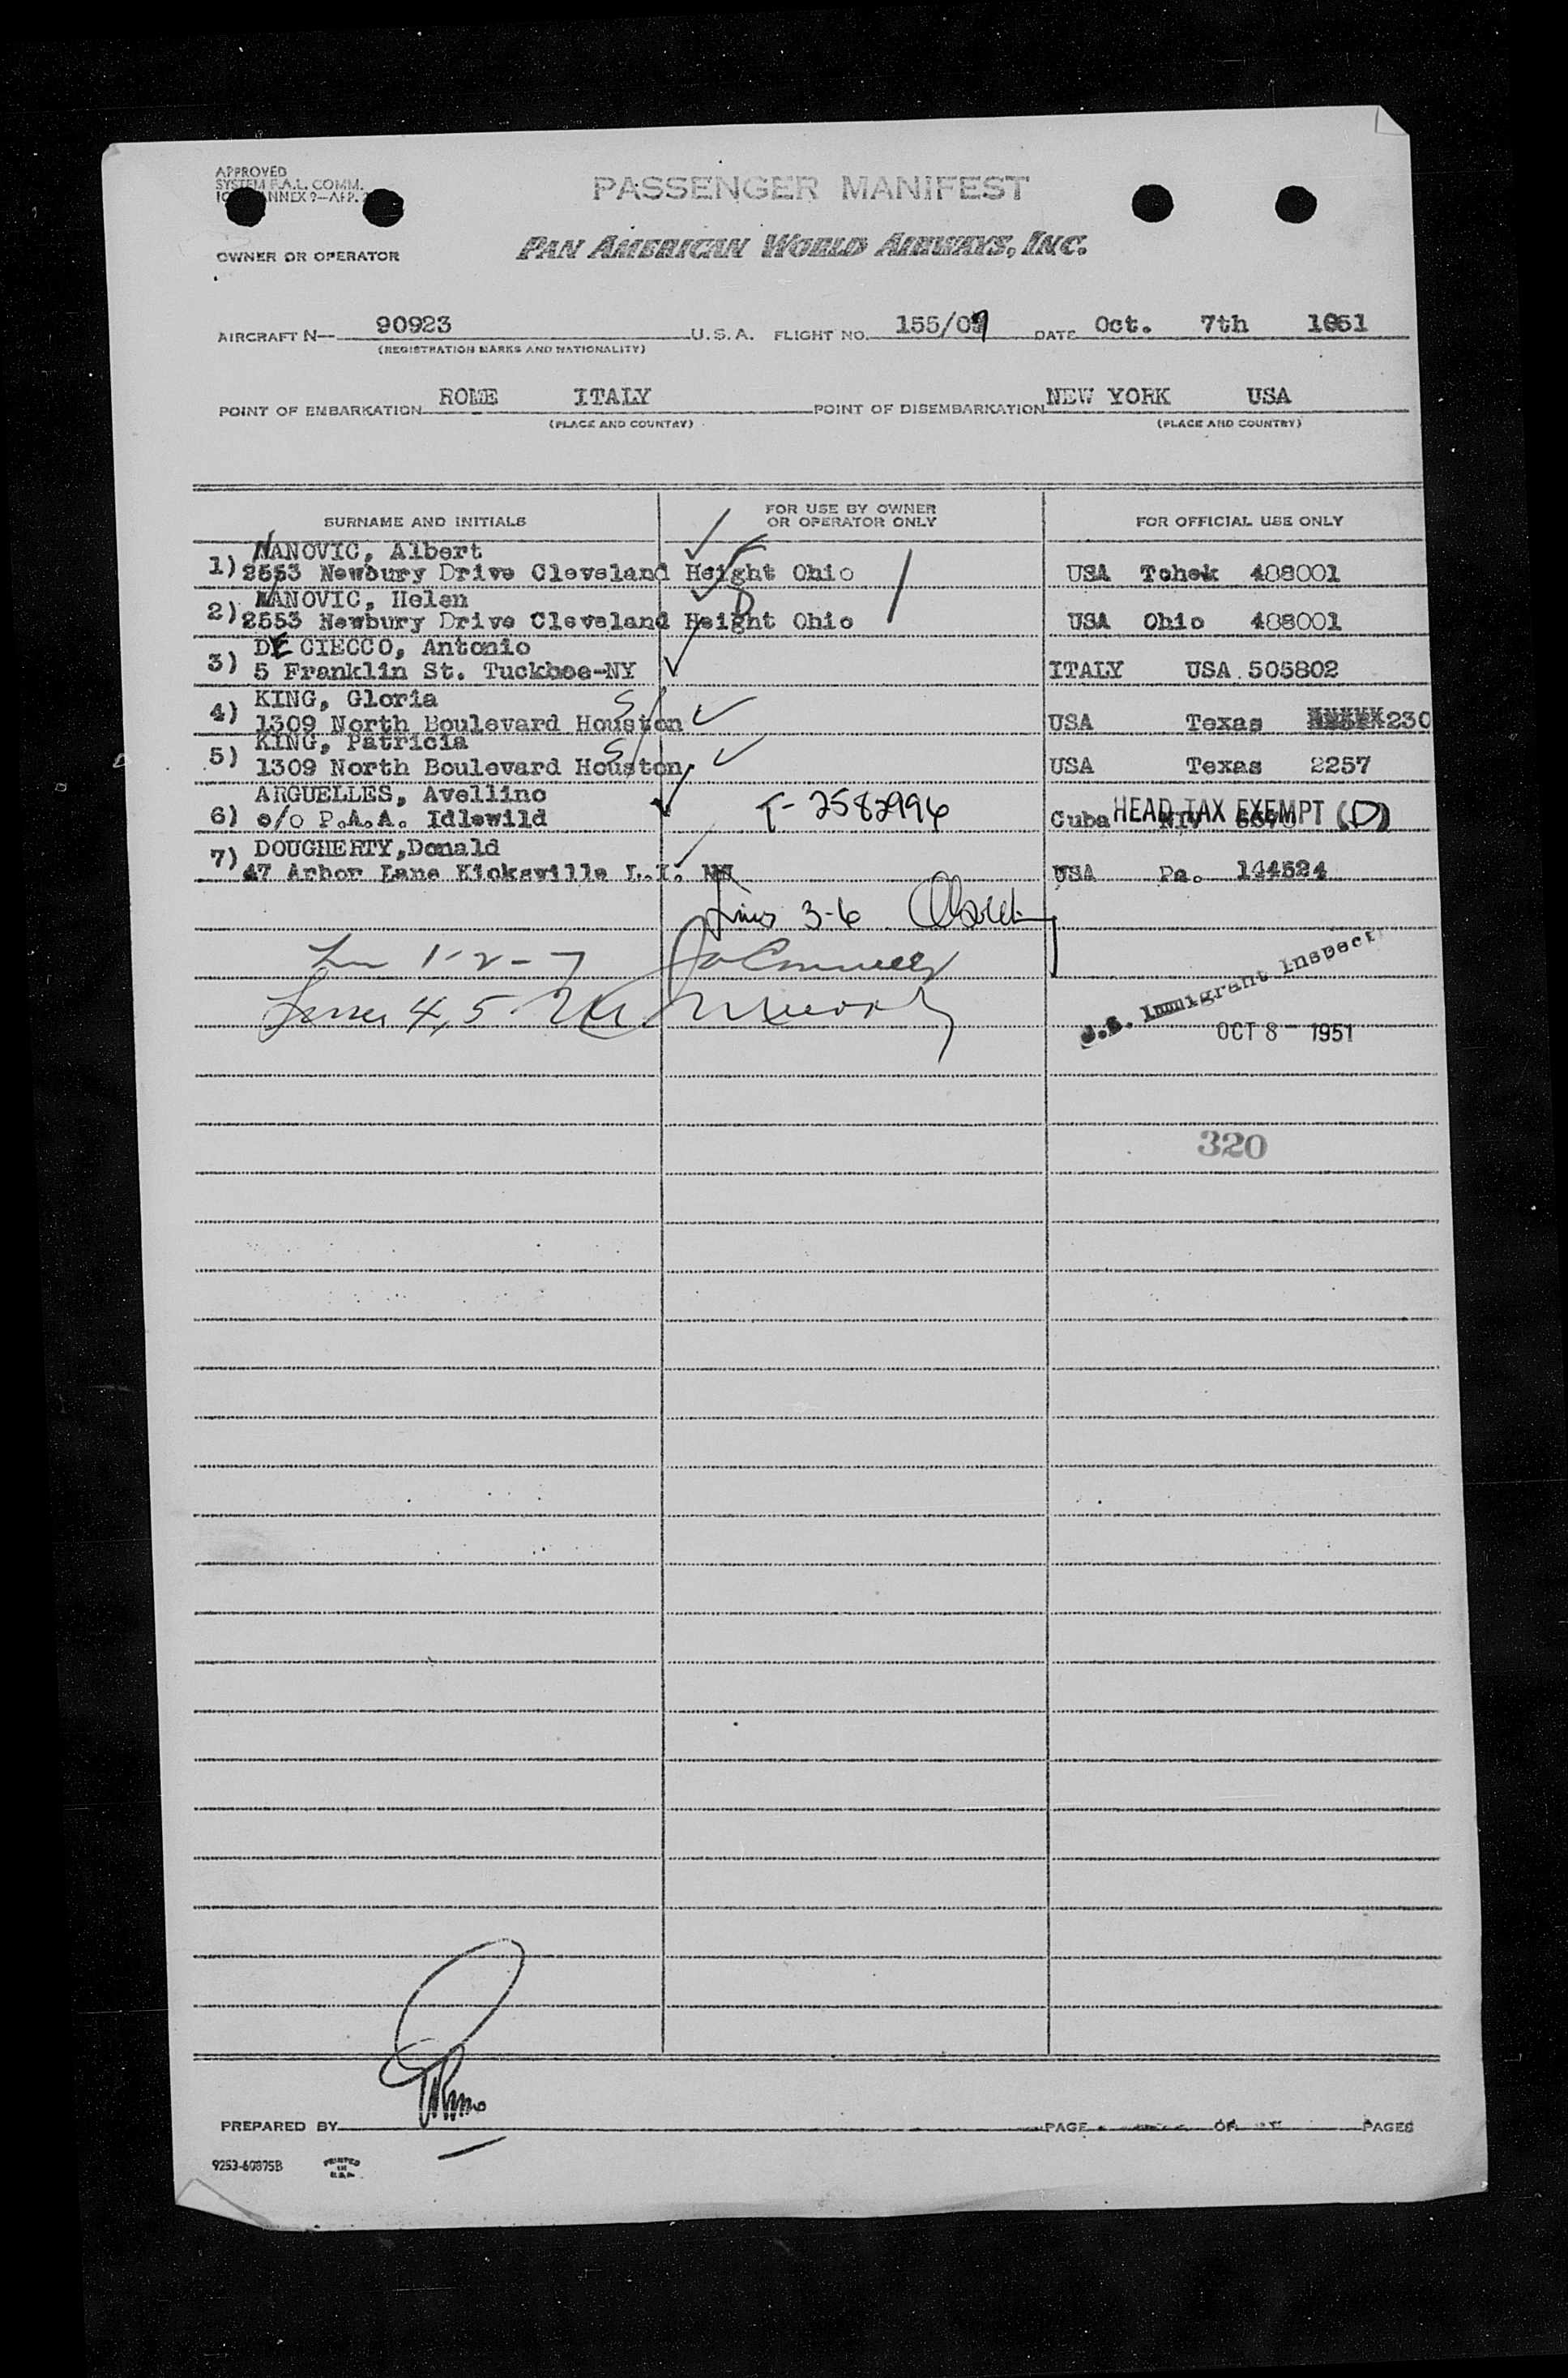 APPROVED
SYSTEM F.A.L. COMM.
PASSENGER MANIFEST
OWNER OR OPERATOR
PAN AMERICAN WORLD AIRWAYS, INC.
AIRCRAFT N— 90923 U.S.A. FLIGHT NO. 155/07 DATE Oct. 7th 1951
(REGISTRATION MARKS AND NATIONALITY)
POINT OF EMBARKATION ROME ITALY POINT OF DISEMBARKATION NEW YORK USA
(PLACE AND COUNTRY) (PLACE AND COUNTRY)
SURNAME AND INITIALS
FOR USE BY OWNER
OR OPERATOR ONLY
FOR OFFICIAL USE ONLY
1) NANOVIC, Albert
2553 Newbury Drive Cleveland Height Ohio USA Tchek 408001
2) NANOVIC, Helen
2553 Newbury Drive Cleveland Height Ohio USA Ohio 408001
D
3) DE CIECCO, Antonio
5 Franklin St. Tuckhoe-NY ITALY USA 505802
4) KING, Gloria
1309 North Boulevard Houston USA Texas 230
5) KING, Patricia
1309 North Boulevard Houston USA Texas 2257
6) ARGUELLES, Avellino
c/o P.A.A. Idlewild T-2582996 Cuba HEAD TAX EXEMPT (D)
7) DOUGHERTY,Donald
47 Arbor Lane Kicksville L.I. USA Pa. 144524
Lines 3-6
1-2-7
Lines 4,5
U.S. Immigrant Inspect
OCT 8 - 1951
320
PREPARED BY PAGE OF PAGES
9253-60875B
PRINTED
IN
U.S.A.